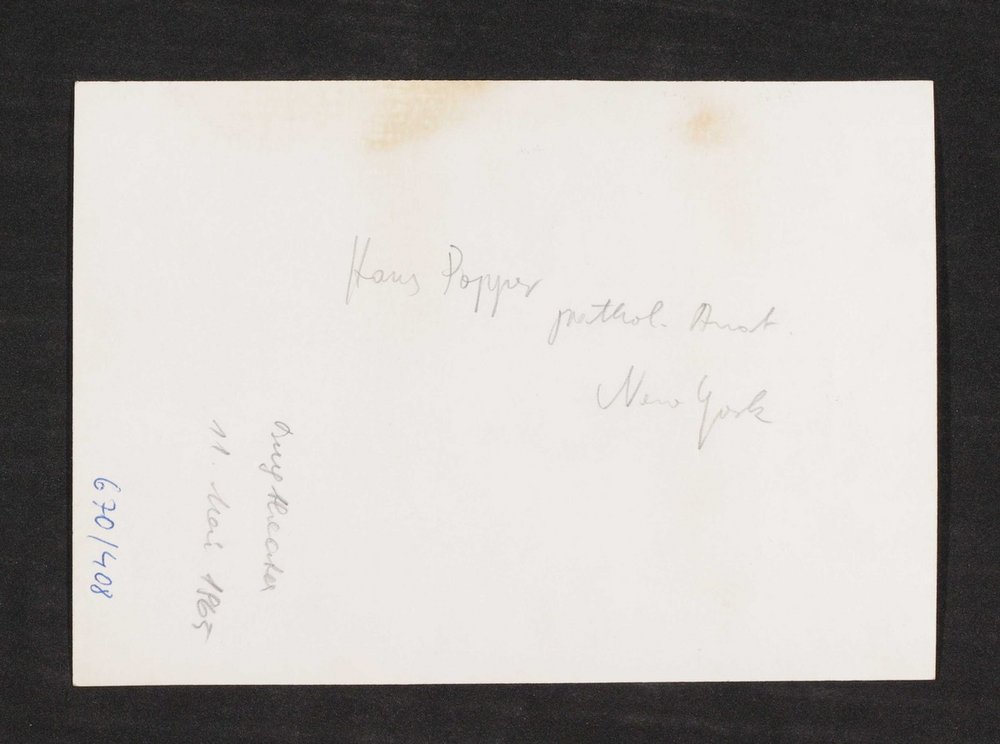 Hans Popper
pathol. Anat.
New York
Burgtheater
11. Mai 1965
670/408